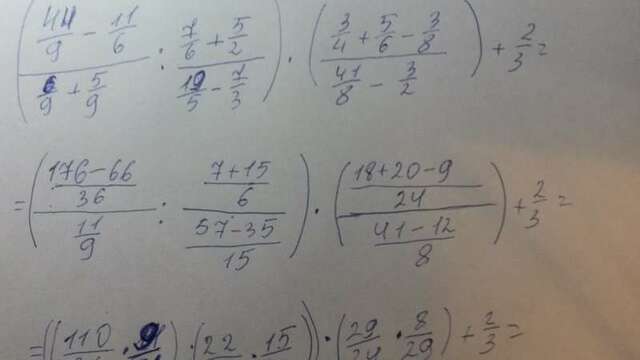 ((44/9 - 11/6)/(6/9 + 5/9) : (7/6 + 5/2)/(19/5 - 7/3)) · ((3/4 + 5/6 - 3/8)/(41/8 - 3/2)) + 2/3 =
= (((176-66)/36)/(11/9) : ((7+15)/6)/((57-35)/15)) · (((18+20-9)/24)/((41-12)/8)) + 2/3 =
= ((110 · 9) · (22 · 15)) · (29/24 · 8/29) + 2/3 =